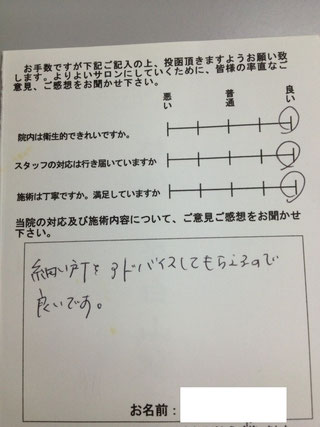 お手数ですが下記ご記入の上、投函頂きますようお願い致
します。よりよいサロンにしていくために、皆様の率直なご
意見、ご感想をお聞かせ下さい。
悪い 普通 良い
院内は衛生的できれいですか。
スタッフの対応は行き届いていますか
施術は丁寧ですか。満足していますか
当院の対応及び施術内容について、ご意見ご感想をお聞かせ
下さい。
細い所までアドバイスしてもらえるので
良いです。
お名前：